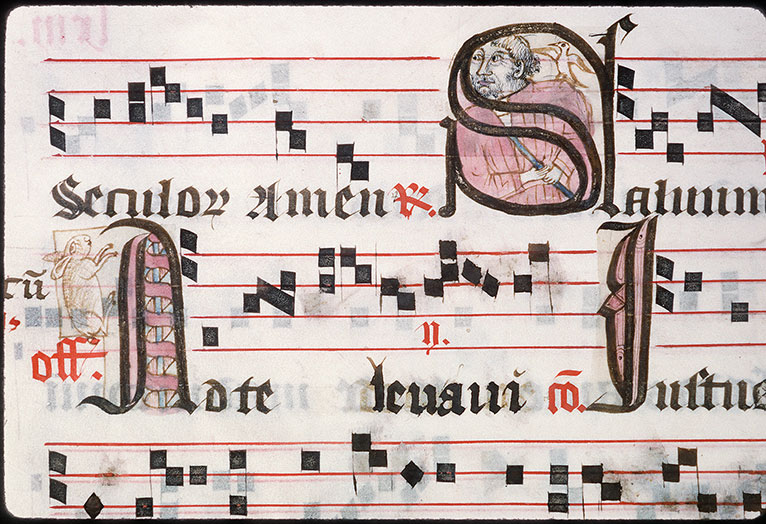 Seculor Amen ℟. Saluum
off. Adte leuaui cō. Iustus